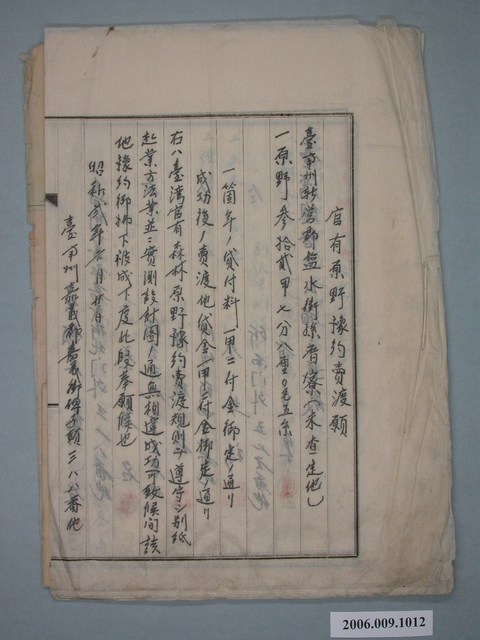 官有原野豫約賣渡願
臺南州新營郡鹽水街孫厝寮(未查定地)
一原野參拾貳甲七分八厘〇毛五糸
一箇年ノ貸付料一甲ニ付金御定ノ通リ
成功後ノ賣渡地貸金一甲ニ付金御定ノ通リ
右ハ臺灣官有森林原野豫約賣渡規則ヲ遵守シ別紙
起業方法業並ニ實測設計圖ノ通無相違成功可致候間該
地豫約御拂下被成下度此段奉願候也
昭和貳年 月廿 日
臺南州嘉義郡嘉義街埤子頭三八八番地
2006.009.1012